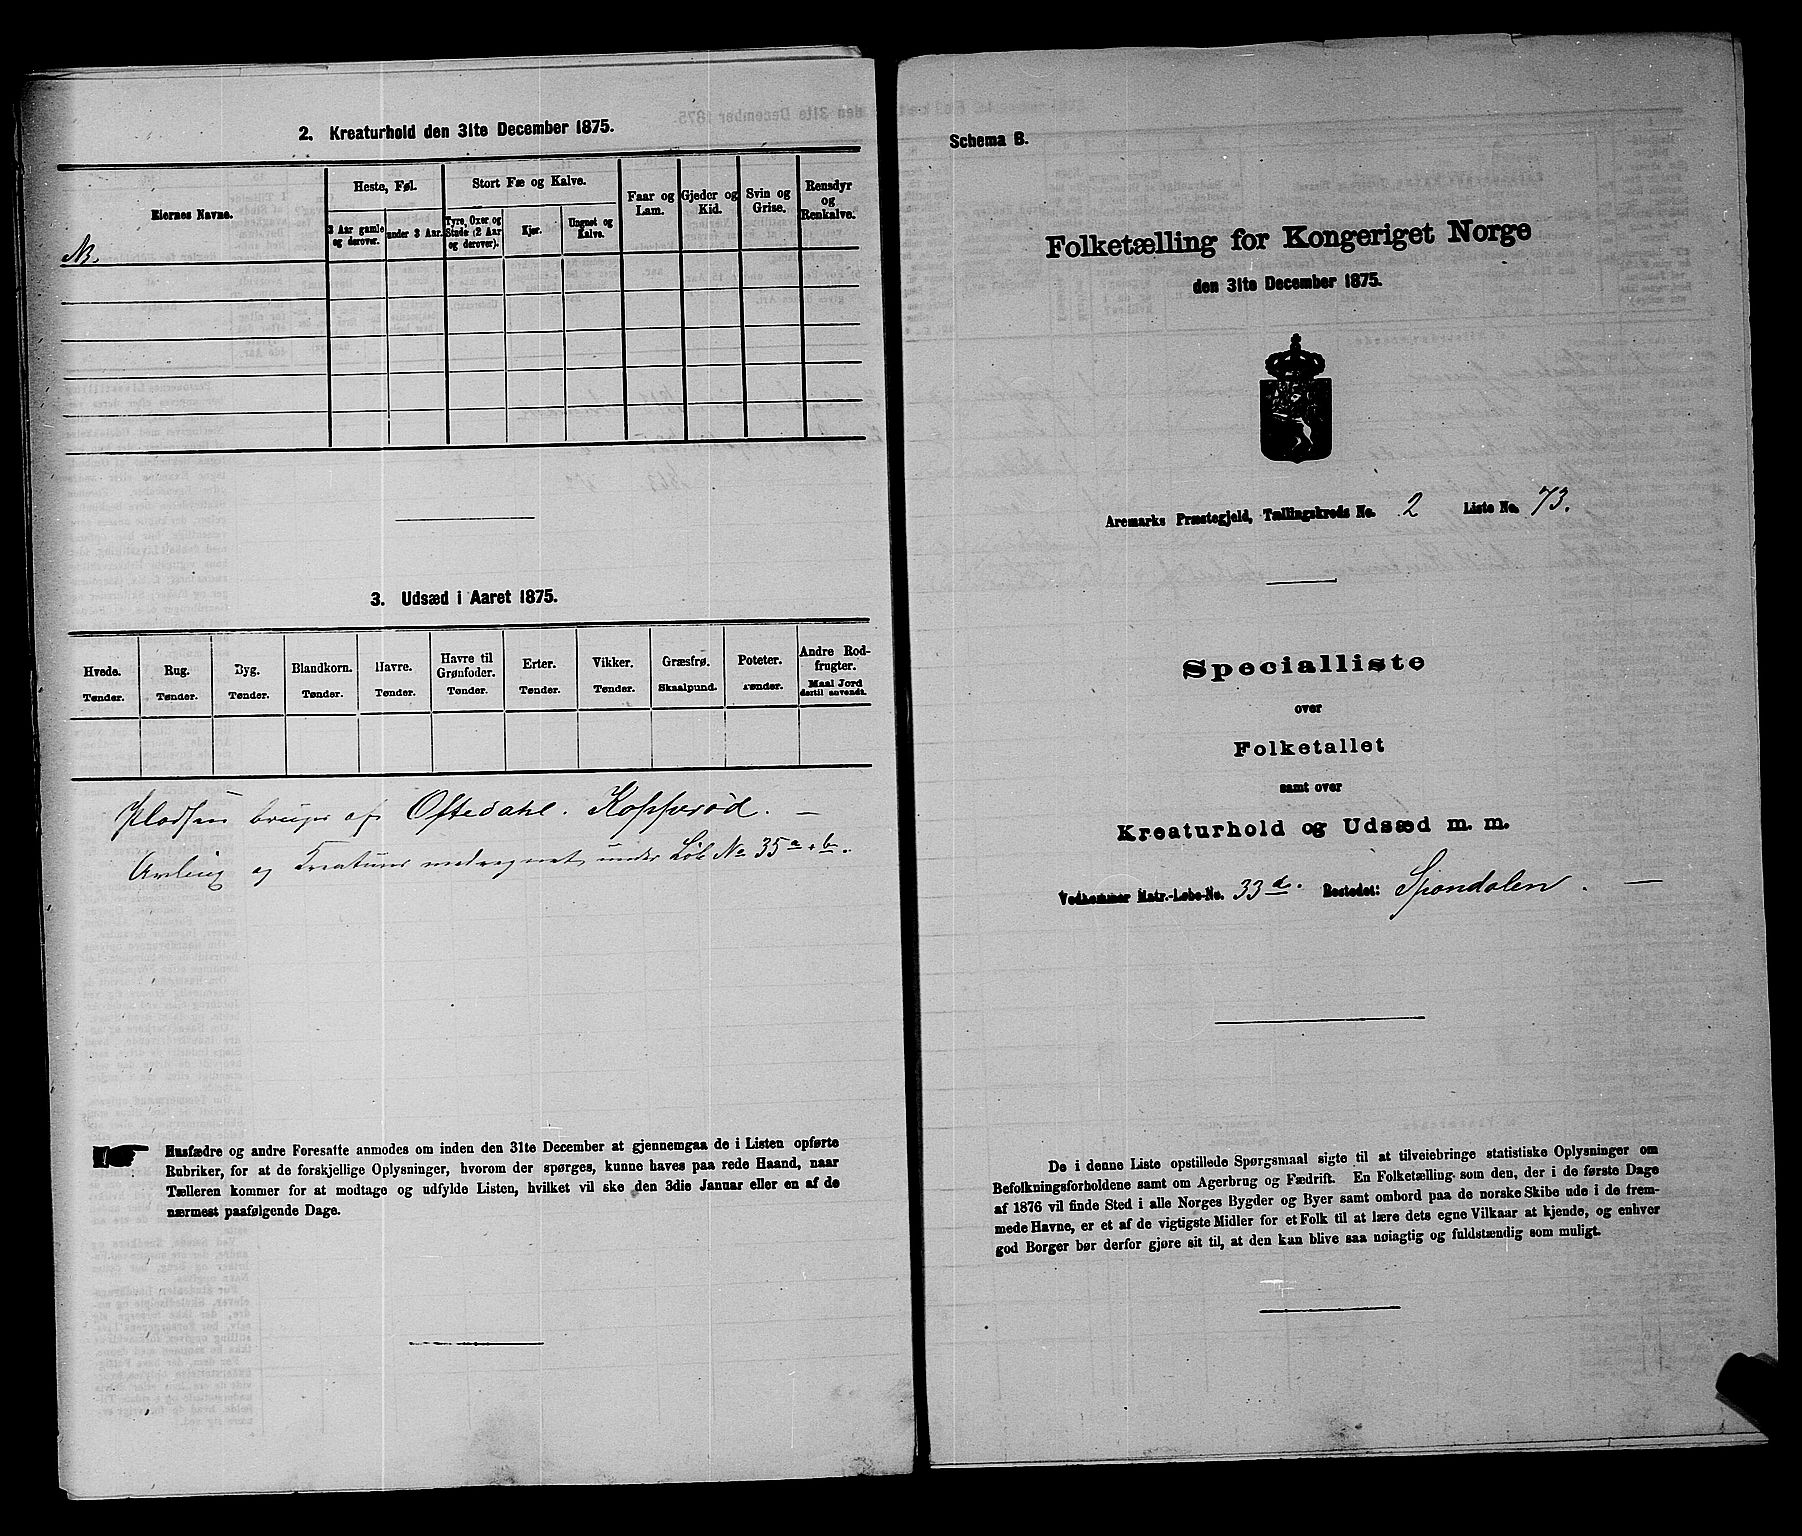 2. Kreaturhold den 31te December 1875.
Eiernes Navne.
Heste, Føl.
3 Aar gamle og derover.
under 3 Aar.
Stort Fæ og Kalve.
Tyre, Oxer og Stude (2 Aar og derover).
Kjør.
Ungnøt og Kalve.
Faar og Lam.
Gjeder og Kid.
Svin og Grise.
Rensdyr og Renkalve.
3. Udsæd i Aaret 1875.
Hvede. Rug. Byg. Blandkorn. Havre. Havre til Grønfoder. Erter. Vikker. Græsfrø. Poteter. Andre Rodfrugter.
Tønder. Tønder. Tønder. Tønder. Tønder. Tønder. Tønder. Tønder. Skaalpund. Tønder. Maal Jord dertil anvendt.
Pladsen bruges af Oftedahl. Kopperød. —
Avling og Kreaturer medregnet under Løb No 35a + b.
Husfædre og andre Foresatte anmodes om inden den 31te December at gjennemgaa de i Listen opførte
Rubriker, for at de forskjellige Oplysninger, hvorom der spørges, kunne haves paa rede Haand, naar
Tælleren kommer for at modtage og udfylde Listen, hvilket vil ske den 3die Januar eller en af de
nærmest paafølgende Dage.
Schema B.
Folketælling for Kongeriget Norge
den 31te December 1875.
Aremarks Præstegjeld, Tællingskreds No. 2 Liste No. 73.
Specialliste
over
Folketallet
samt over
Kreaturhold og Udsæd m. m.
Vedkommer Matr.-Løbe-No. 33d. Bostedet: Spondalen. —
De i denne Liste opstillede Spørgsmaal sigte til at tilveiebringe statistiske Oplysninger om
Befolkningsforholdene samt om Agerbrug og Fædrift. En Folketælling som den, der i de første Dage
af 1876 vil finde Sted i alle Norges Bygder og Byer samt ombord paa de norske Skibe ude i de frem-
mede Havne, er et af de vigtigste Midler for et Folk til at lære dets egne Vilkaar at kjende, og enhver
god Borger bør derfor gjøre sit til, at den kan blive saa nøiagtig og fuldstændig som muligt.